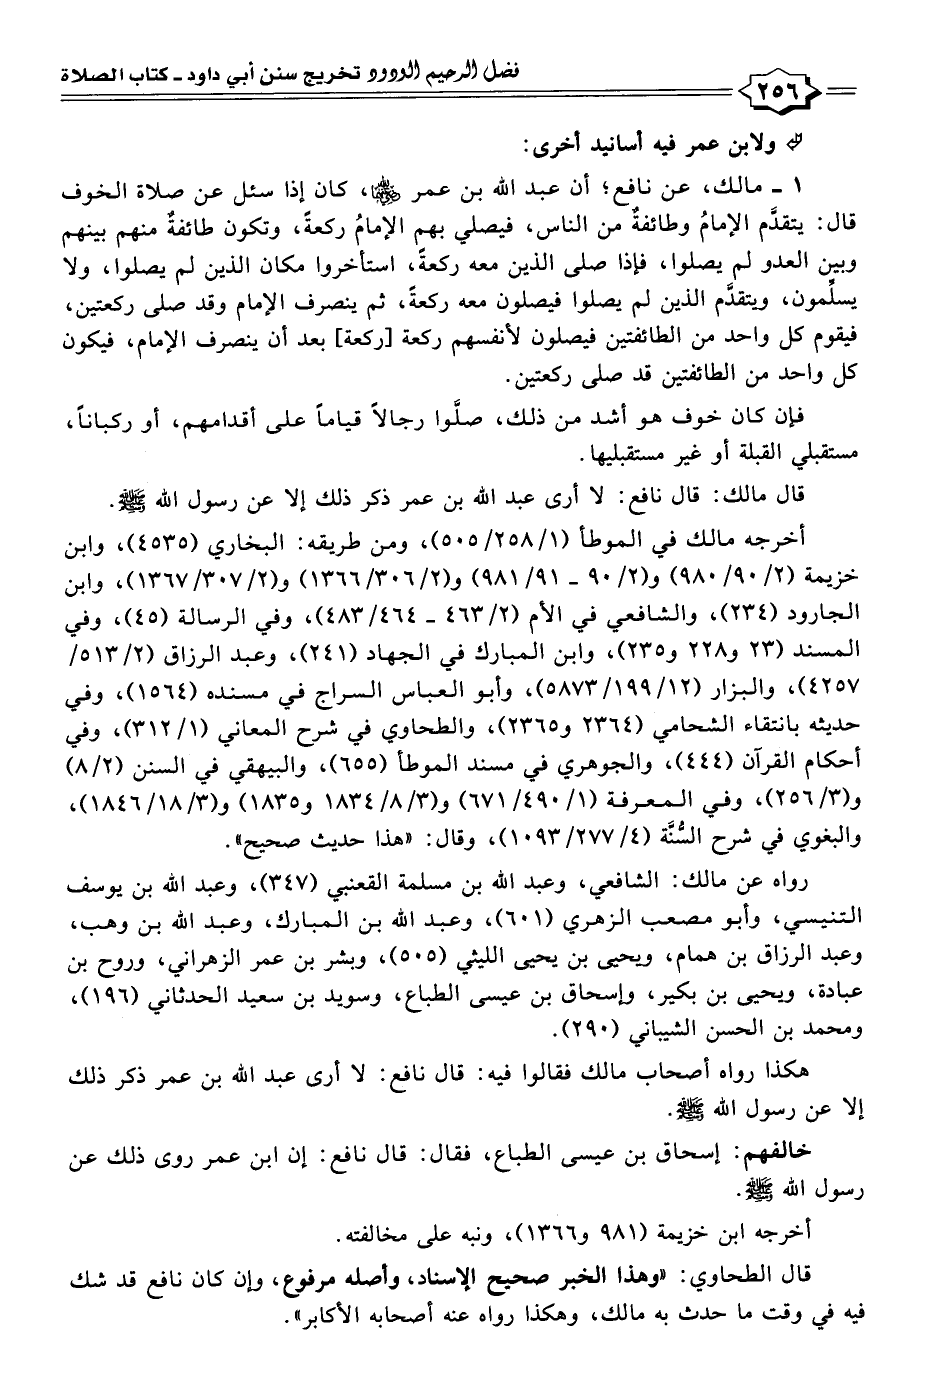 فضل الرحيم الودود تخريج سنن أبي داود ـ كتاب الصلاة
٢٥٦
ولابن عمر فيه أسانيد أخرى:
١ ـ مالك، عن نافع؛ أن عبد الله بن عمر ﵄، كان إذا سئل عن صلاة الخوف
قال: يتقدَّم الإمامُ وطائفةٌ من الناس، فيصلي بهم الإمامُ ركعةً، وتكون طائفةٌ منهم بينهم
وبين العدو لم يصلوا، فإذا صلى الذين معه ركعةً، استأخروا مكان الذين لم يصلوا، ولا
يسلِّمون، ويتقدَّم الذين لم يصلوا فيصلون معه ركعةً، ثم ينصرف الإمام وقد صلى ركعتين،
فيقوم كل واحد من الطائفتين فيصلون لأنفسهم ركعة [ركعة] بعد أن ينصرف الإمام، فيكون
كل واحد من الطائفتين قد صلى ركعتين.
فإن كان خوف هو أشد من ذلك، صلَّوا رجالاً قياماً على أقدامهم، أو ركباناً،
مستقبلي القبلة أو غير مستقبليها.
قال مالك: قال نافع: لا أرى عبد الله بن عمر ذكر ذلك إلا عن رسول الله ﷺ.
أخرجه مالك في الموطأ (١/ ٢٥٨/ ٥٠٥)، ومن طريقه: البخاري (٤٥٣٥)، وابن
خزيمة (٢/ ٩٠/ ٩٨٠) و(٢/ ٩٠ ـ ٩١/ ٩٨١) و(٢/ ٣٠٦/ ١٣٦٦) و(٢/ ٣٠٧/ ١٣٦٧)، وابن
الجارود (٢٣٤)، والشافعي في الأم (٢/ ٤٦٣ ـ ٤٦٤/ ٤٨٣)، وفي الرسالة (٤٥)، وفي
المسند (٢٣ و٢٢٨ و٢٣٥)، وابن المبارك في الجهاد (٢٤١)، وعبد الرزاق (٢/ ٥١٣/
٤٢٥٧)، والبزار (١٢/ ١٩٩/ ٥٨٧٣)، وأبو العباس السراج في مسنده (١٥٦٤)، وفي
حديثه بانتقاء الشحامي (٢٣٦٤ و٢٣٦٥)، والطحاوي في شرح المعاني (١/ ٣١٢)، وفي
أحكام القرآن (٤٤٤)، والجوهري في مسند الموطأ (٦٥٥)، والبيهقي في السنن (٢/ ٨)
و(٣/ ٢٥٦)، وفي المعرفة (١/ ٤٩٠/ ٦٧١) و(٣/ ٨/ ١٨٣٤ و١٨٣٥) و(٣/ ١٨/ ١٨٤٦)،
والبغوي في شرح السُّنَّة (٤/ ٢٧٧/ ١٠٩٣)، وقال: «هذا حديث صحيح».
رواه عن مالك: الشافعي، وعبد الله بن مسلمة القعنبي (٣٤٧)، وعبد الله بن يوسف
التنيسي، وأبو مصعب الزهري (٦٠١)، وعبد الله بن المبارك، وعبد الله بن وهب،
وعبد الرزاق بن همام، ويحيى بن يحيى الليثي (٥٠٥)، وبشر بن عمر الزهراني، وروح بن
عبادة، ويحيى بن بكير، وإسحاق بن عيسى الطباع، وسويد بن سعيد الحدثاني (١٩٦)،
ومحمد بن الحسن الشيباني (٢٩٠).
هكذا رواه أصحاب مالك فقالوا فيه: قال نافع: لا أرى عبد الله بن عمر ذكر ذلك
إلا عن رسول الله ﷺ.
خالفهم: إسحاق بن عيسى الطباع، فقال: قال نافع: إن ابن عمر روى ذلك عن
رسول الله ﷺ.
أخرجه ابن خزيمة (٩٨١ و١٣٦٦)، ونبه على مخالفته.
قال الطحاوي: «وهذا الخبر صحيح الإسناد، وأصله مرفوع، وإن كان نافع قد شك
فيه في وقت ما حدث به مالك، وهكذا رواه عنه أصحابه الأكابر».